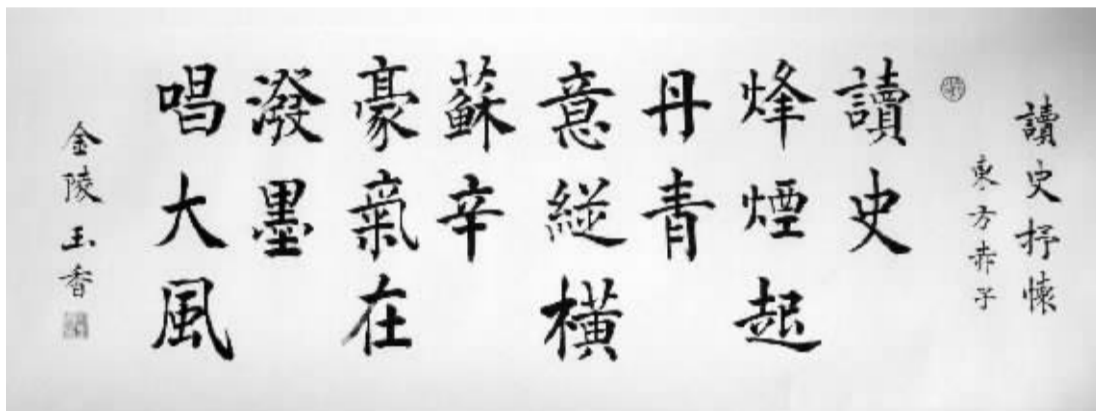 讀史抒懷
東方赤子
讀史
烽煙起
丹青
意縱橫
蘇辛
豪氣在
潑墨
唱大風
金陵玉香